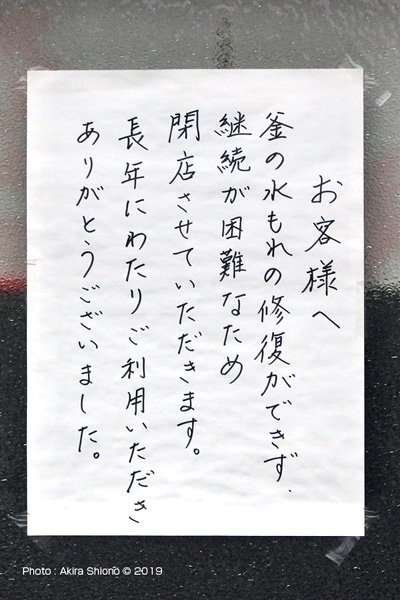 お客様へ
釜の水もれの修復ができず、
継続が困難なため
閉店させていただきます。
長年にわたりご利用いただき
ありがとうございました。
Photo : Akira Shiono © 2019